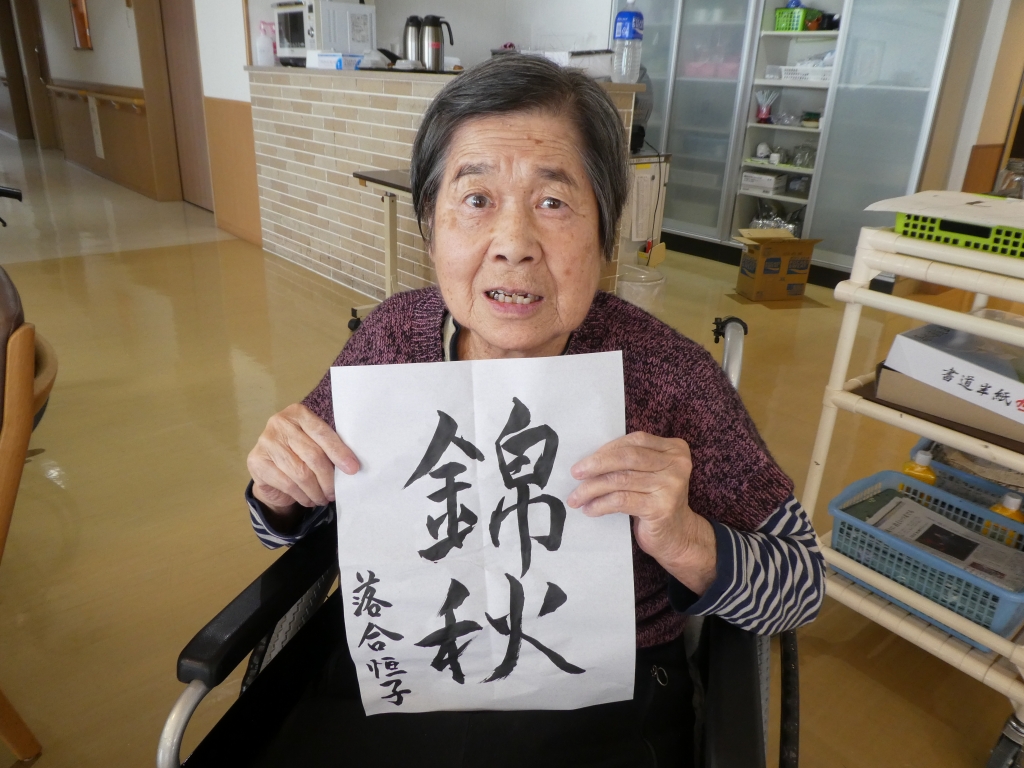 錦秋
落合恒子
書道半紙